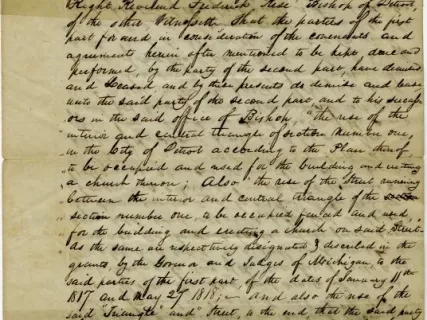 Right Reverend Frederick Rese Bishop of Detroit,
of the other Witnesseth that the parties of the first
part for and in consideration of the covenants and
agreements herein after mentioned to be kept, done and
performed, by the party of the second part, have demised
and Leased and by these presents do demise and lease
unto the said party of the second part, and to his success-
ors in the said office of Bishop, "the use of the
interior and central triangle of section number one,
in the City of Detroit according to the Plan thereof
to be occupied and used for the building and erecting
a church thereon; Also "the use of the Street running
between the interior and central triangle of the
section number one, to be occupied fenced and used,
for the building and erecting a church on said Street"
as the same are respectively designated & described in the
grants, by the Governor and Judges of Michigan to the
said parties of the first part, of the dates of January 11th
1817 and May 27 1818; and also the use of the
said "Triangle" and "Street, to the end that the said party